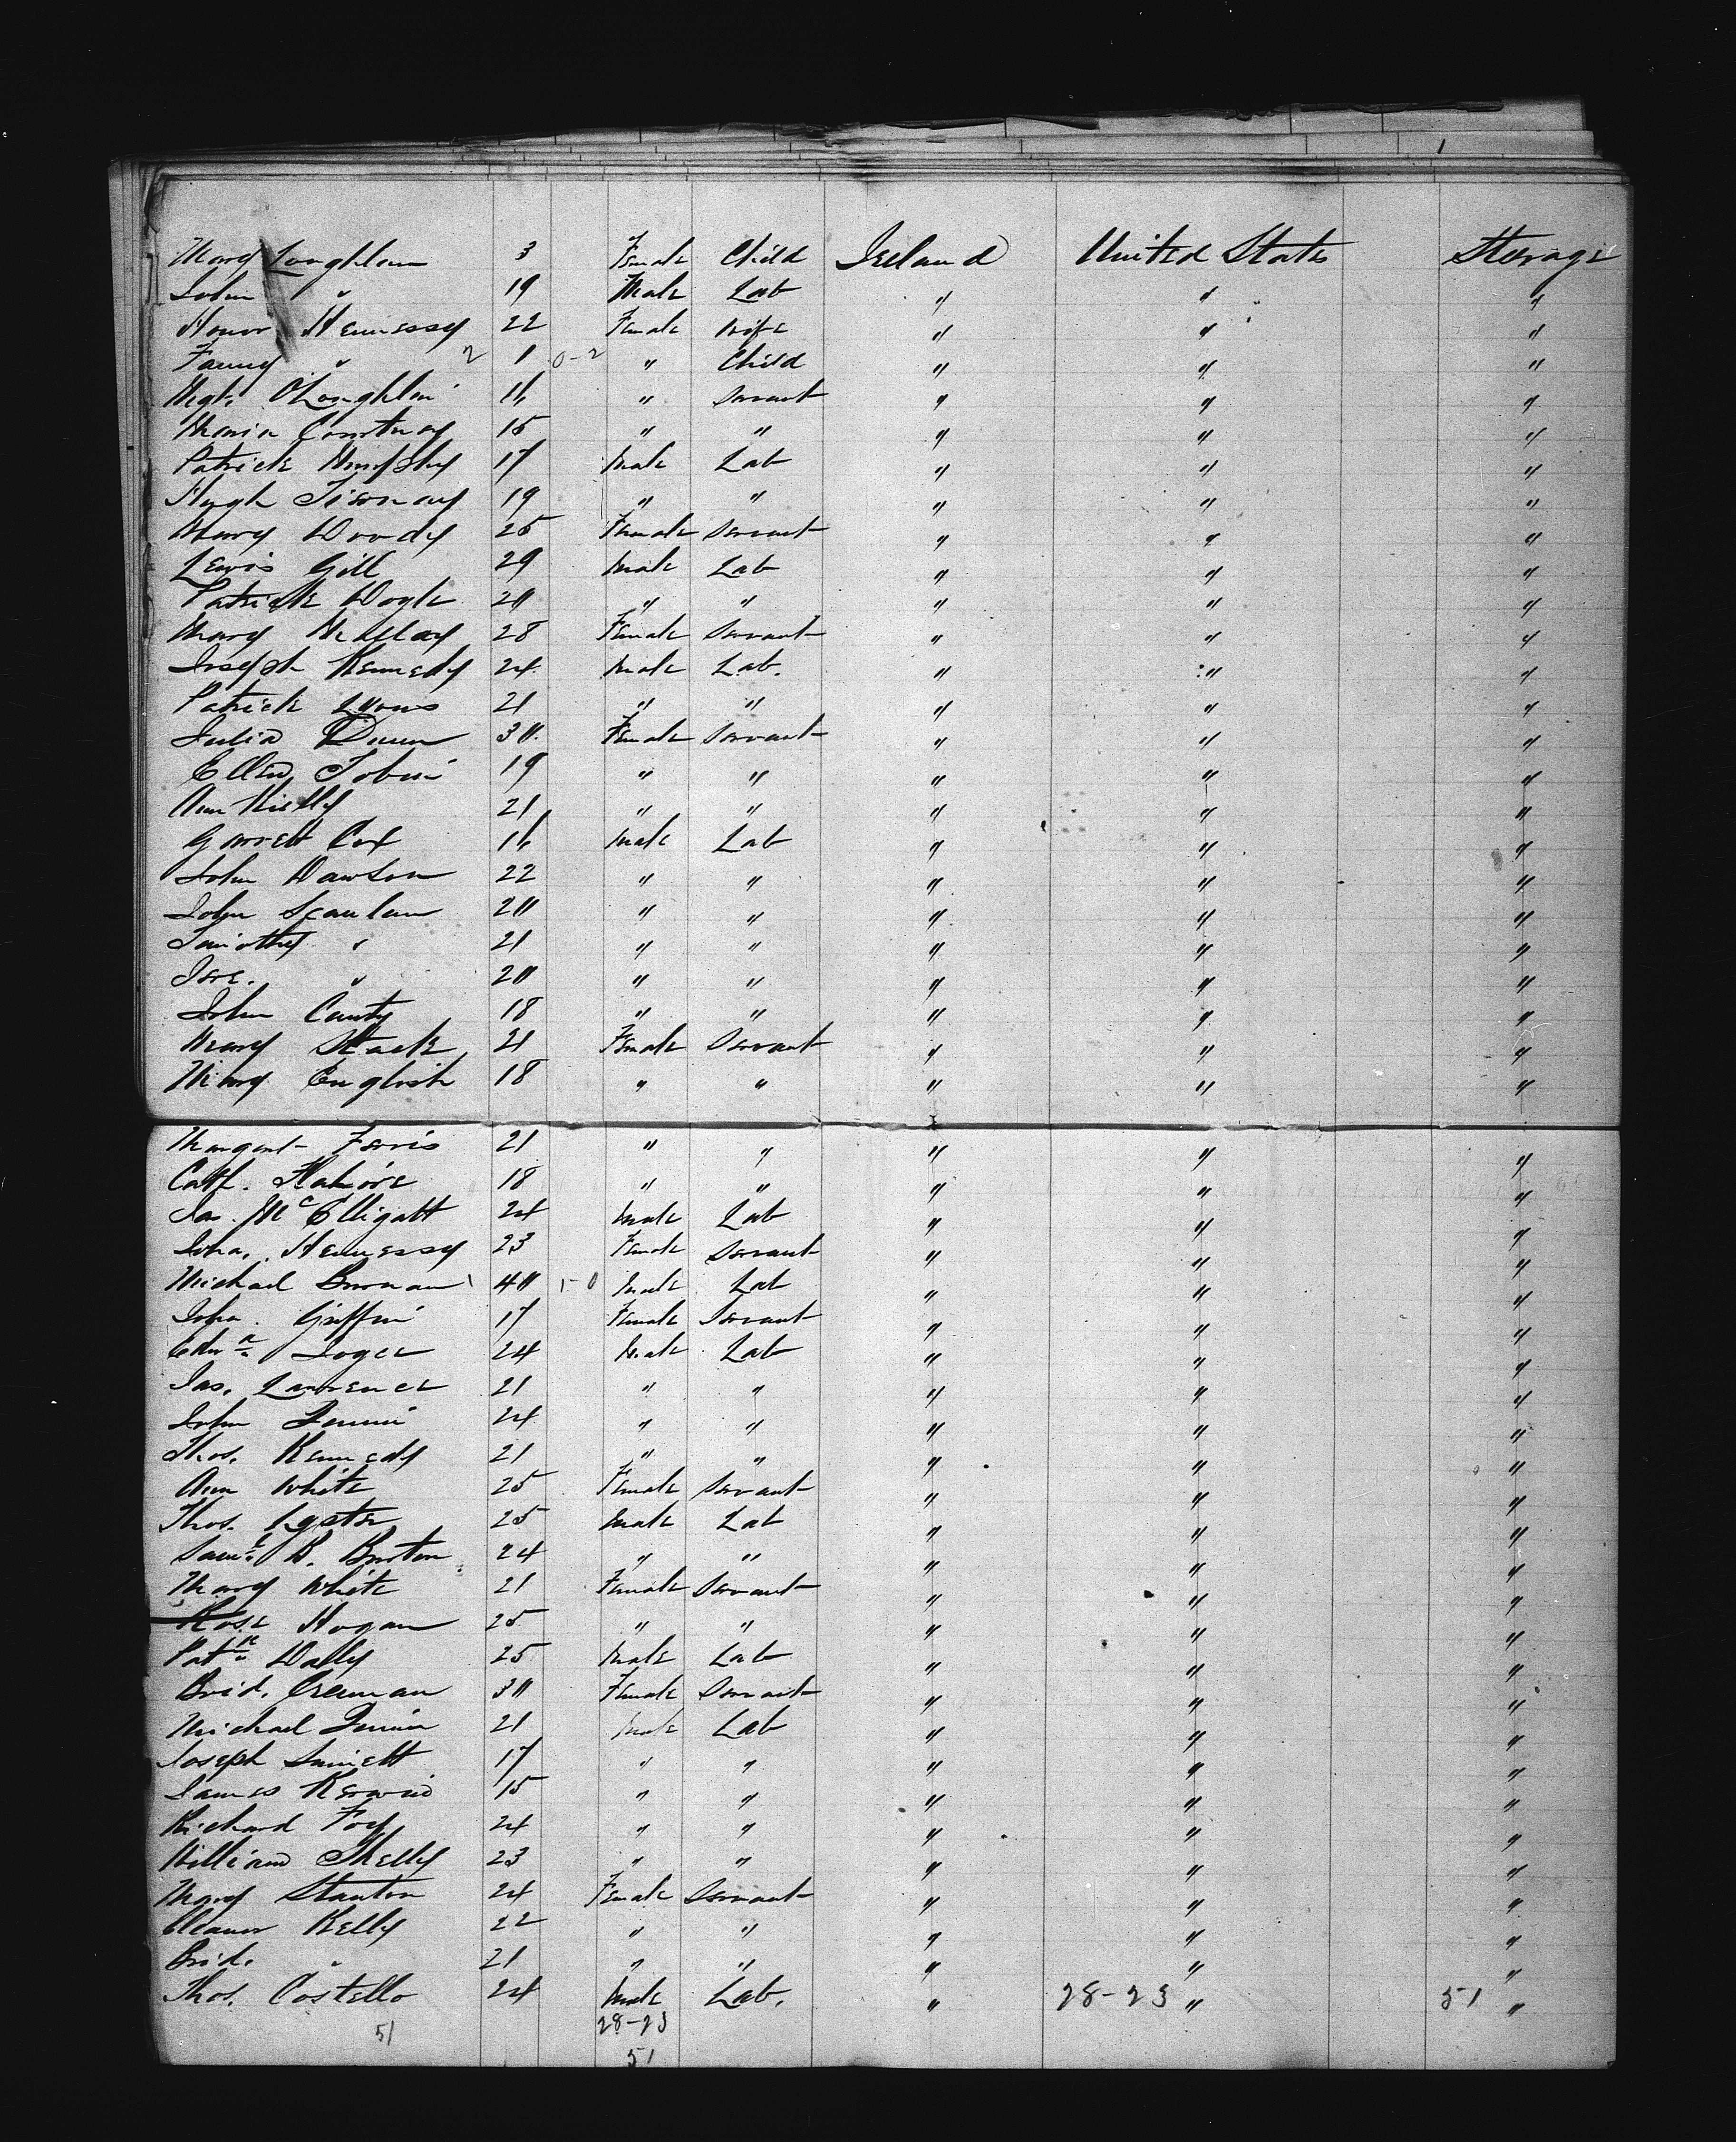 Mary Loughlin 3 Female Child Ireland United States Steerage
John " 19 Male Lab " " "
Honor Hennessy 22 Female Wife " " "
Fanny " 2 1 0-2 " Child " " "
Mgt. O'Loughlin 16 " Servant " " "
Maria Courtney 15 " " " " "
Patrick 17 Male Lab " " "
Hugh Tiernay 19 " " " " "
Mary Woody 25 Female Servant " " "
Lewis Gill 29 Male Lab " " "
Patrick Doyle 20 " " " " "
Mary 28 Female Servant " " "
Joseph Kennedy 24 Male Lab. " " "
Patrick Lyons 21 " " " " "
Julia Dunn 30 Female Servant " " "
Ellen Tobin 19 " " " " "
Ann Kielly 21 " " " " "
Garrett Cox 16 Male Lab " " "
John Dawson 22 " " " " "
John Scanlan 20 " " " " "
Timothy " 21 " " " " "
Jere. " 20 " " " " "
John Canty 18 " " " " "
Mary Stack 21 Female Servant " " "
Mary English 18 " " " " "
Margaret Ferris 21 " " " " "
Cath. 18 " " " " "
Jas. McElligatt 24 Male Lab " " "
Joha. Hennessy 23 Female Servant " " "
Michael 40 1-0 Male Lab " " "
Joha. Griffin 17 Female Servant " " "
Edwd. Joyce 24 Male Lab " " "
Jas. Lawrence 21 " " " " "
John 24 " " " " "
Thos. Kennedy 21 " " " " "
Ann White 25 Female Servant " " "
Thos. Lyster 25 Male Lab " " "
Saml. B. Burton 24 " " " " "
Mary White 21 Female Servant " " "
Rose Hogan 25 " " " " "
Patk. Dally 25 Male Lab " " "
Brid. Creman 30 Female Servant " " "
Michael 21 Male Lab " " "
Joseph Sinnett 17 " " " " "
James Kerwin 15 " " " " "
Richard Foy 24 " " " " "
William Skelly 23 " " " " "
Mary Stanton 24 Female Servant " " "
Eleanor Kelly 22 " " " " "
Brid. " 21 " " " " "
Thos. Costello 24 Male Lab. " 28-23 " 51 "
51 28-23
51